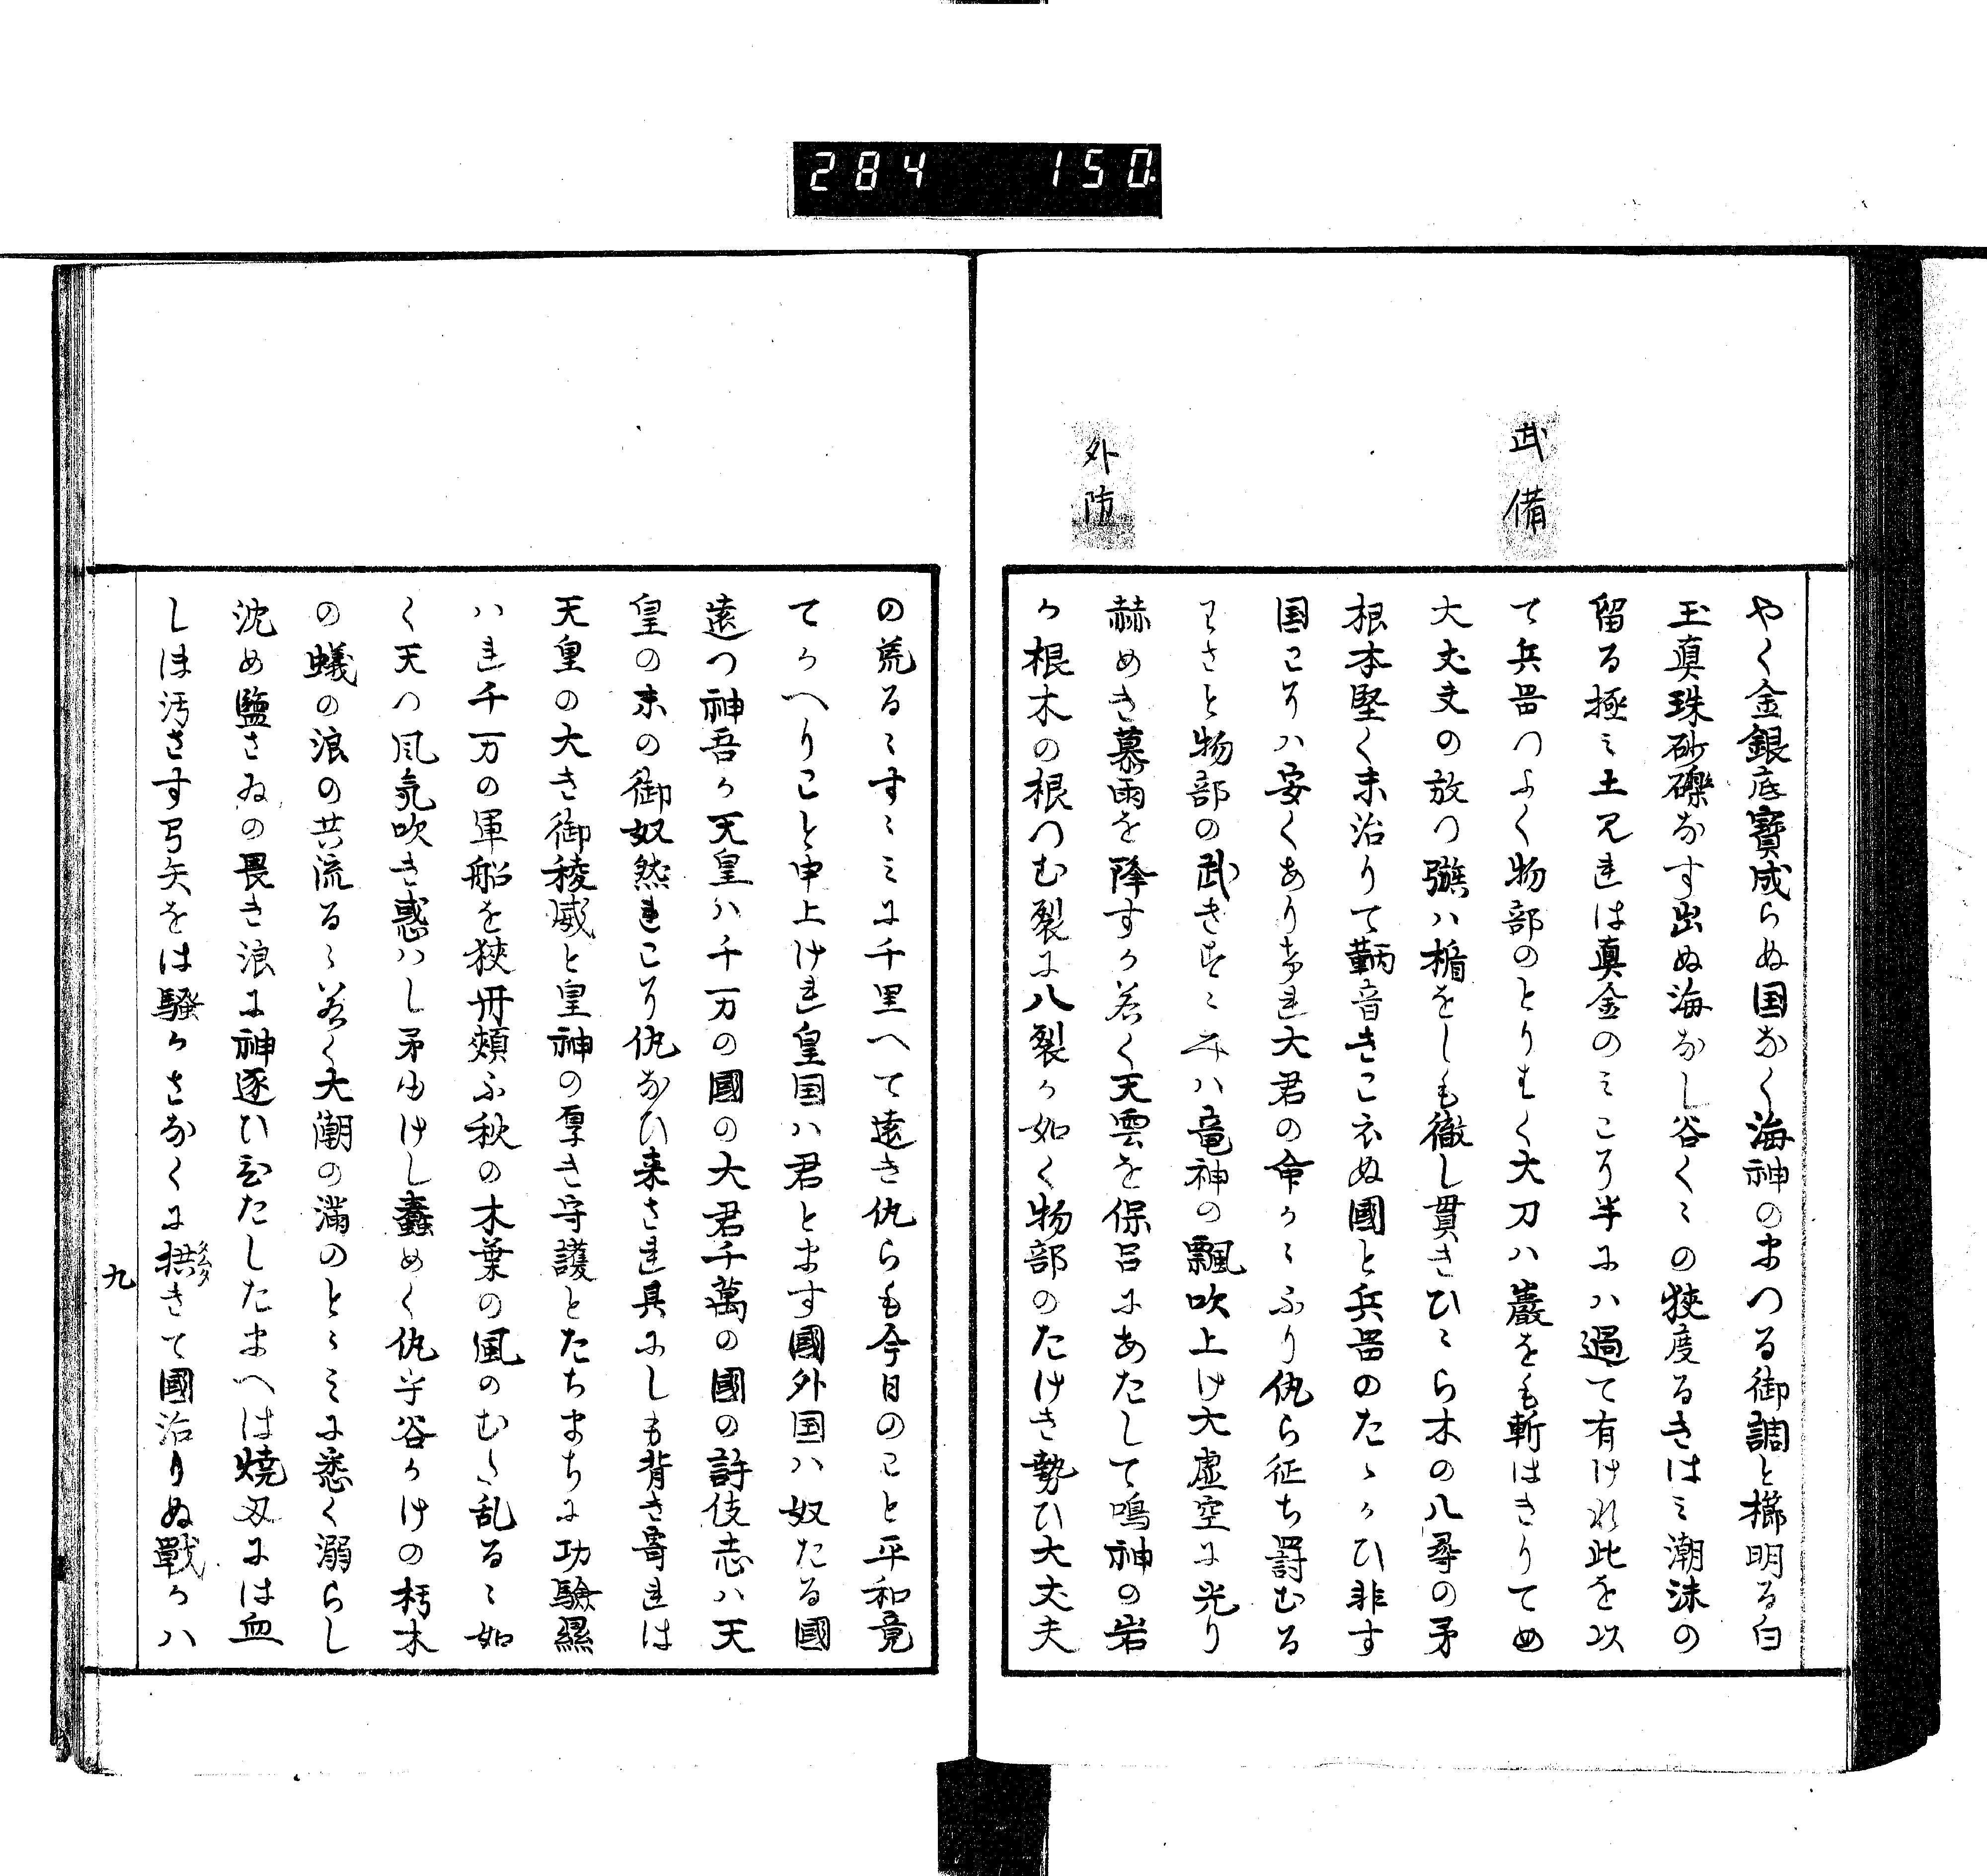 284 150
武備
外防
やく金銀底寳成らぬ国なく海神のまつる御調と櫛明る白
玉真珠砂礫なす出ぬ海なし谷くゝの狭度るきはミ潮沫の
留る極ミ土见れは真金のミこり半にハ過て有けれ此を以
て兵器つよく物部のとりはく大刀ハ巌をも斬はきりてめ
大丈夫の放つ鏃ハ楯をしも徹し貫きひゝら木の八尋の矛
根本堅く末治りて鞆音きこえぬ國と兵器のたゝかひ非す
国こそハ安くありけれ大君の命かゝふり仇ら征ち罸むる
わさと物部の武きすゝみハ竜神の飄吹上け大虚空に光り
赫めき暴雨を降すか若く天雲を保呂にあたして鳴神の岩
か根木の根つむ裂に八裂か如く物部のたけき勢ひ大丈夫
の荒るゝすゝミに千里へて遠き仇らも今日のこと平和竟
てかへりこと申上けれ皇国ハ君とます國外国ハ奴たる國
遠つ神吾か天皇ハ千万の國の大君千萬の國の許伎志ハ天
皇の末の御奴然れこそ仇なひ来され具にしも背き寄れは
天皇の大き御稜威と皇神の厚き守護とたちまちに功驗顕
ハれ千万の軍船を狭冊頬ふ秋の木葉の風のむた乱るゝ如
く天つ風気吹き惑ハし矛ゆけし蠢めく仇等谷かけの朽木
の蟻の浪の共流るゝ若く大潮の満のとゝミに悉く溺らし
沈め鹽さゐの畏き浪に神逐ひひたしたまへは焼刃には血
しほ汚さす弓矢をは騒かさなくに拱きて國治りぬ戰かハ
九